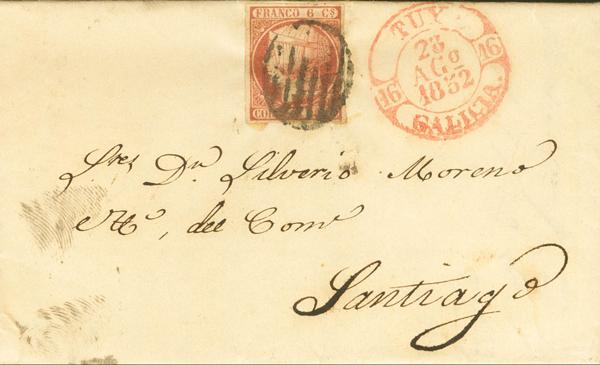 FRANCO 6 Cs
TUY
23
AGO
1852
16 16
GALICIA.
Sres Dn Silverio Moreno
del Como
Santiago